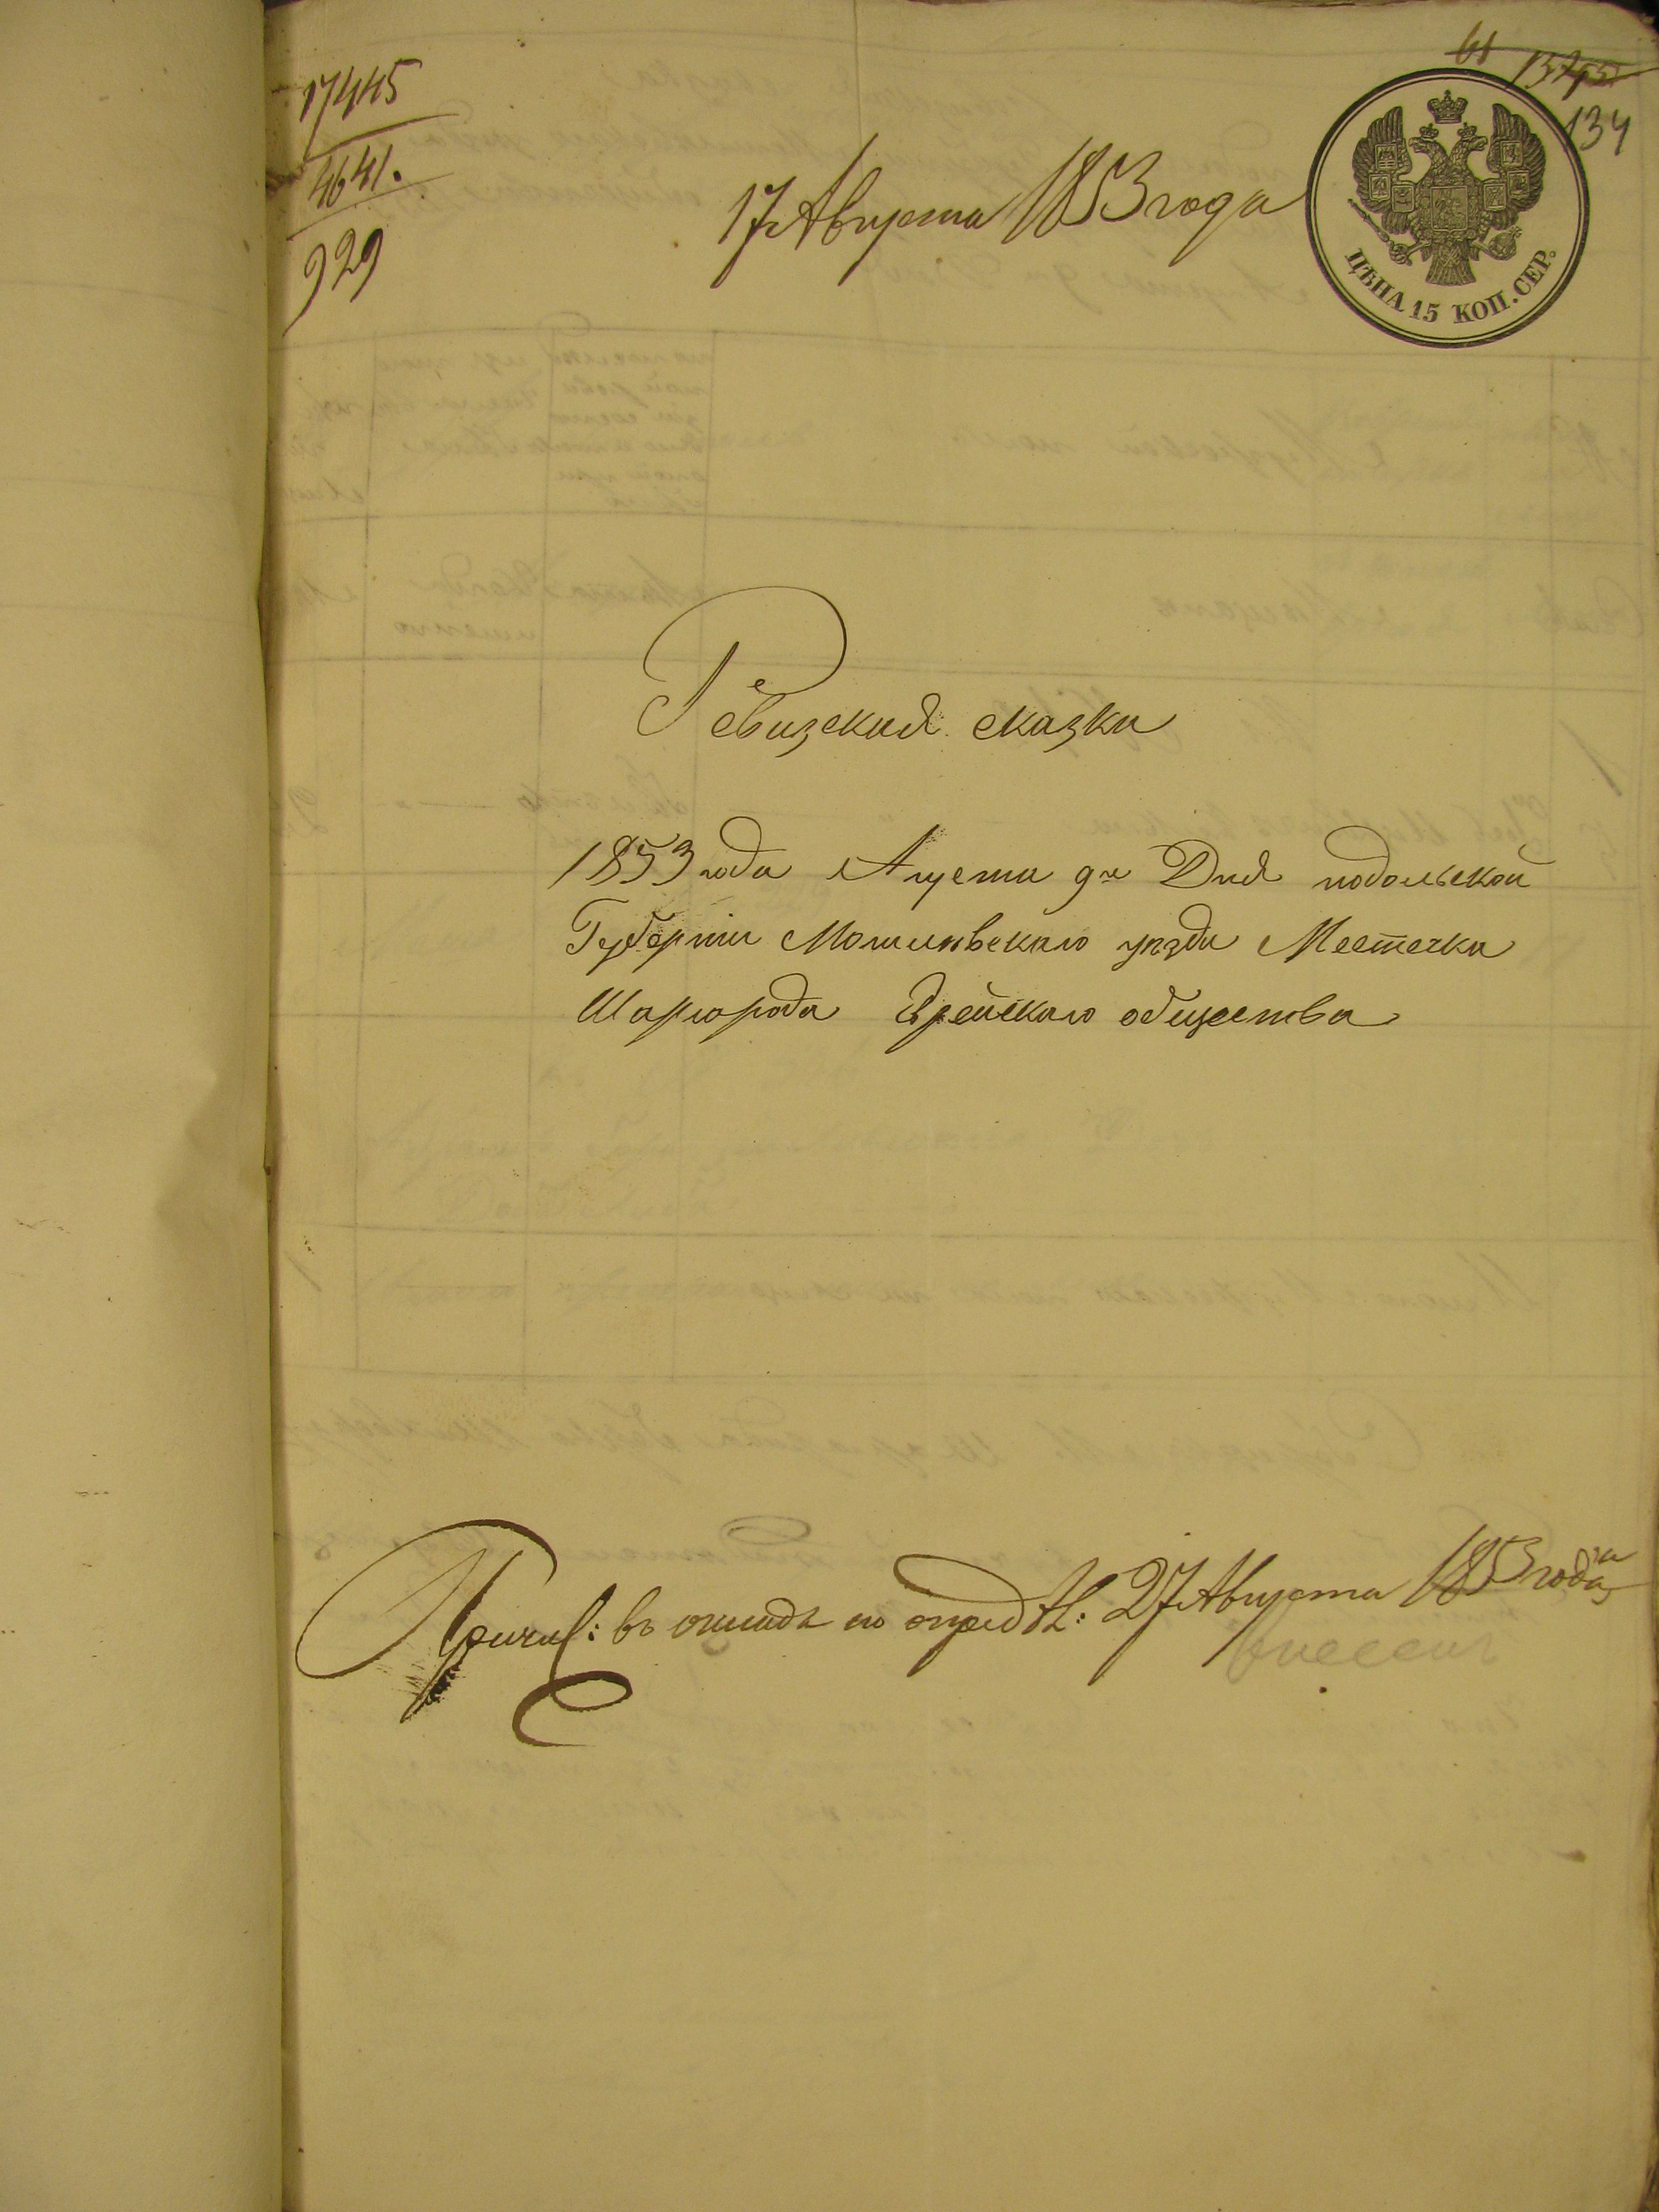 17445
4641.
929
61
134
17 Августа 1853 года
ЦѢНА 15 КОП. СЕР.
Ревизская сказка
1853 года Агуста 9го Дня подольской
Губернии Могилевскаго уезда Местечка
Шаргорода Еврейскаго общества
Причисл: въ окладъ по опредѣл: 27 Августа 1853 года